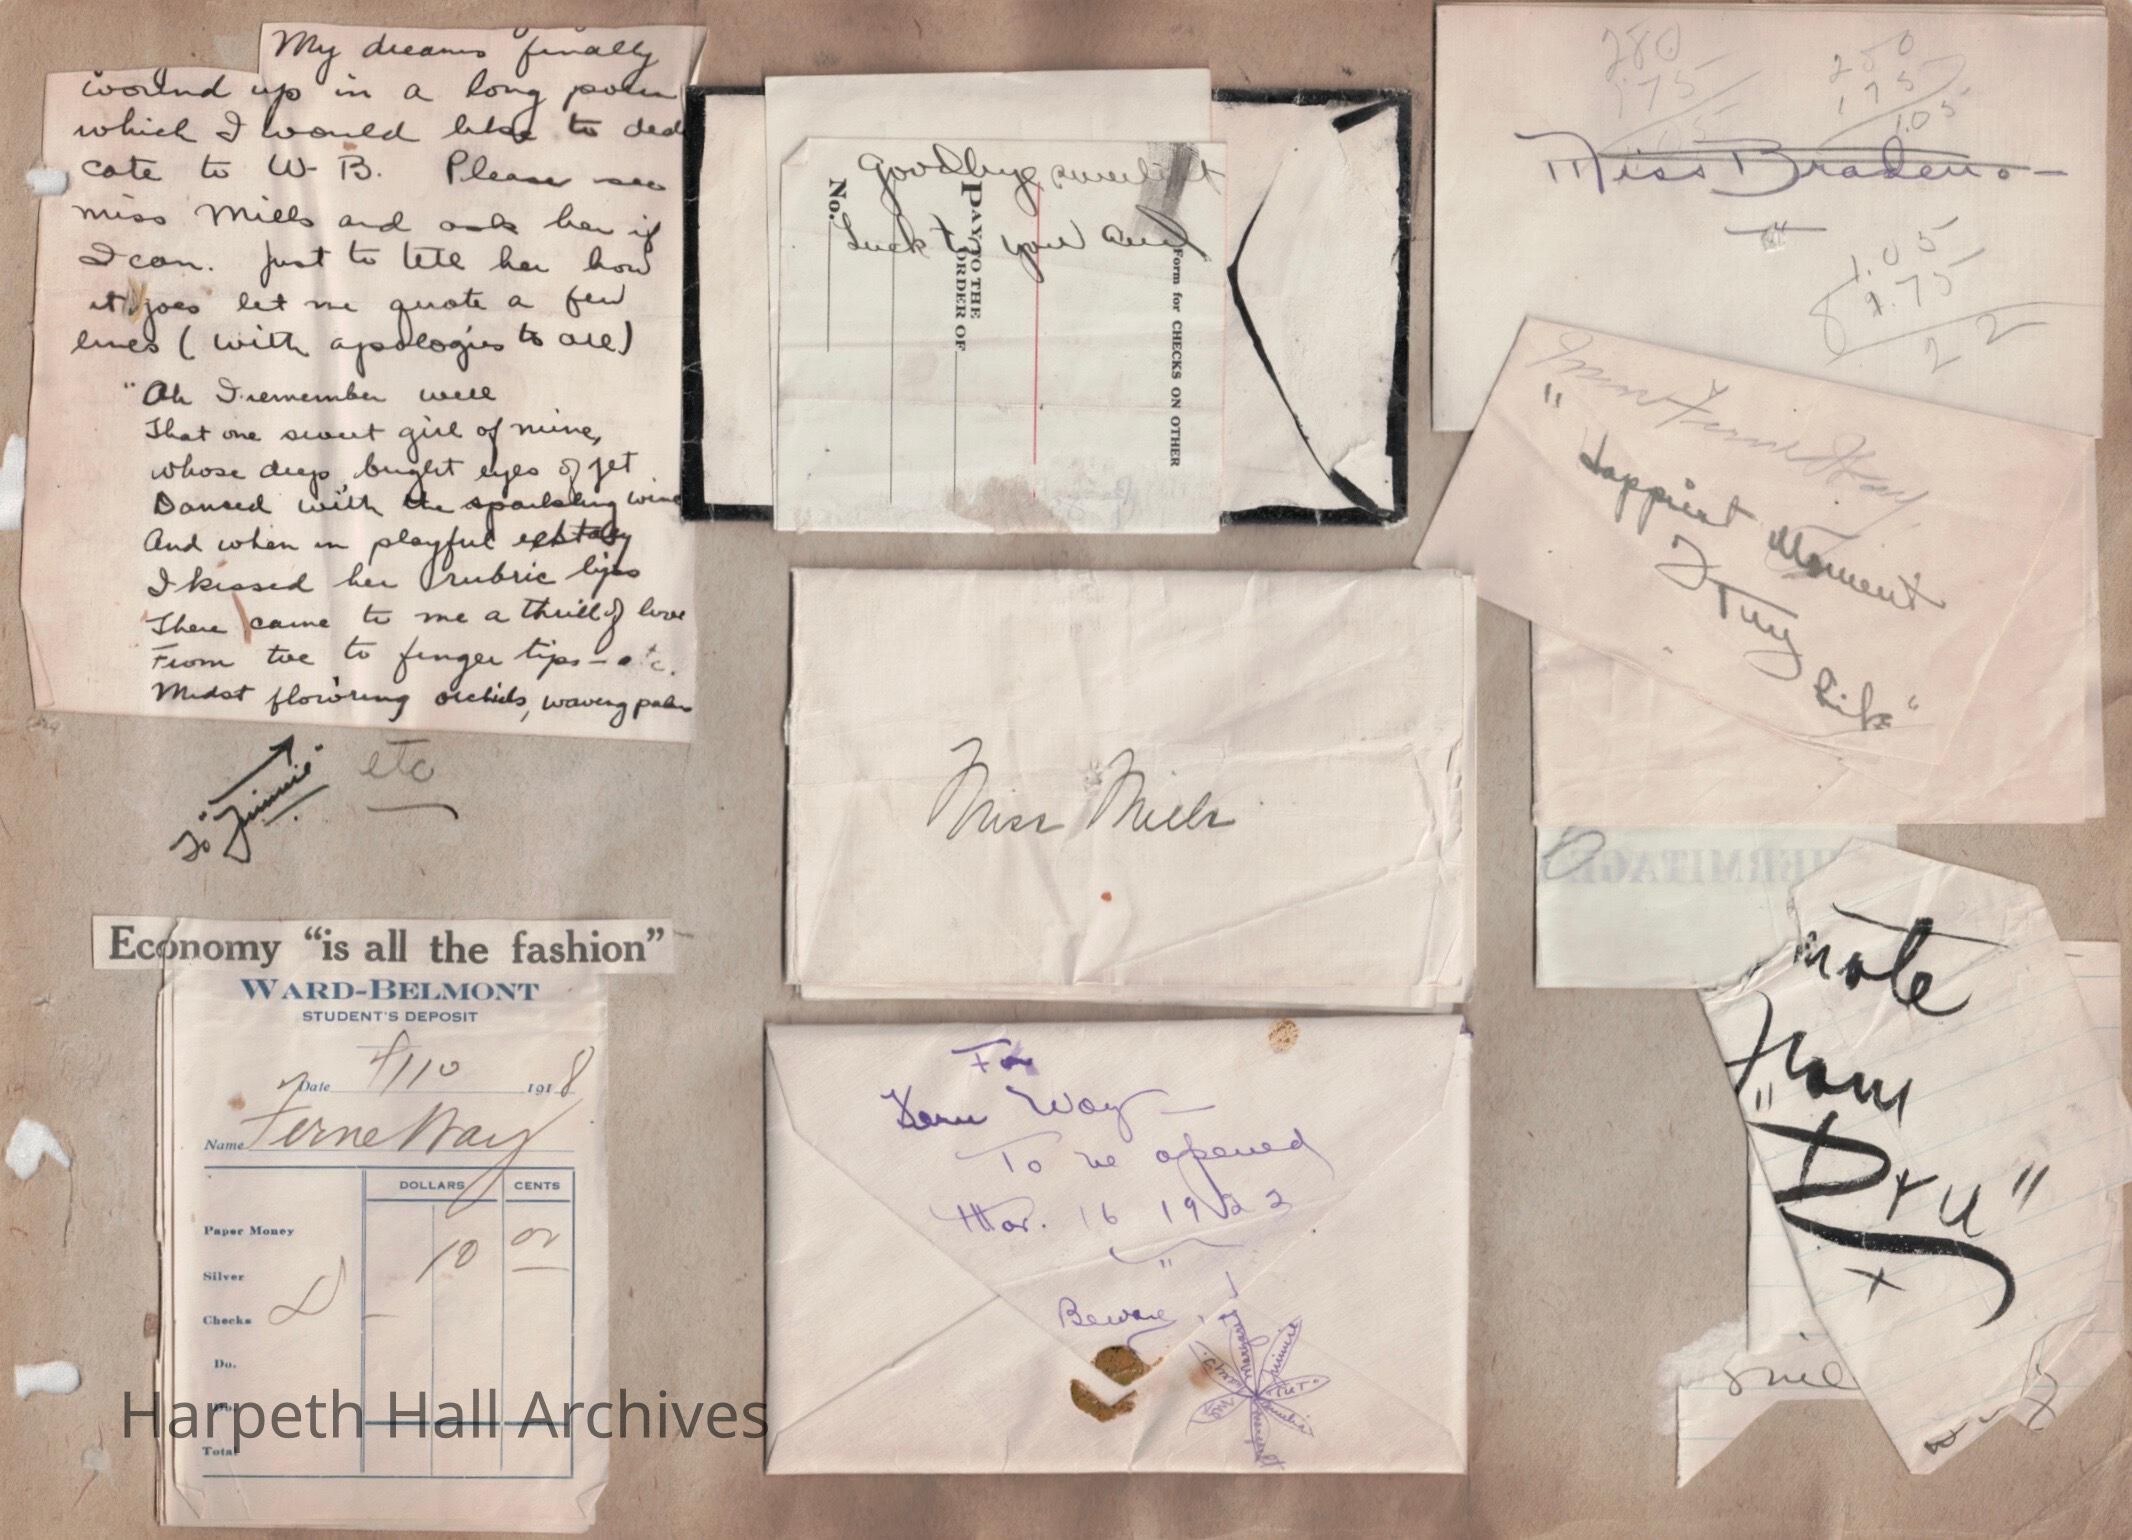 My dreams finally
wound up in a long poem
which I would like to dedi
cate to W-B. Please see
Miss Mills and ask her if
I can. Just to tell her how
it goes let me quote a few
lines (with apologies to all)
"Ah I remember well
That one sweet girl of mine,
whose deep, bright eyes of jet
Danced with the sparkling wine
And when in playful
I kissed her rubric lips
There came to me a thrill of love
From toe to finger tips - etc.
Midst flowring orchids, waving palms
etc
To "Jimmie"
Economy "is all the fashion"
WARD-BELMONT
STUDENT'S DEPOSIT
Date 4/10 1918
Name Ferne Way
DOLLARS CENTS
Paper Money
10
Silver
Checks
Do.
Do.
Total
Harpeth Hall Archives
Goodbye sweetest
Luck to you and
No.
PAY TO THE
ORDER OF
Form for CHECKS ON OTHER
Miss Mills
For
Fern Way -
To be opened
Mar. 16 1922
Beware
Jimmie
280
175
105
250
175
1.05
Miss Braden -
1.05
1.75
22
"Happiest Moment
of my
Life"
HERMITAGE
Note
From
"Dru"
x